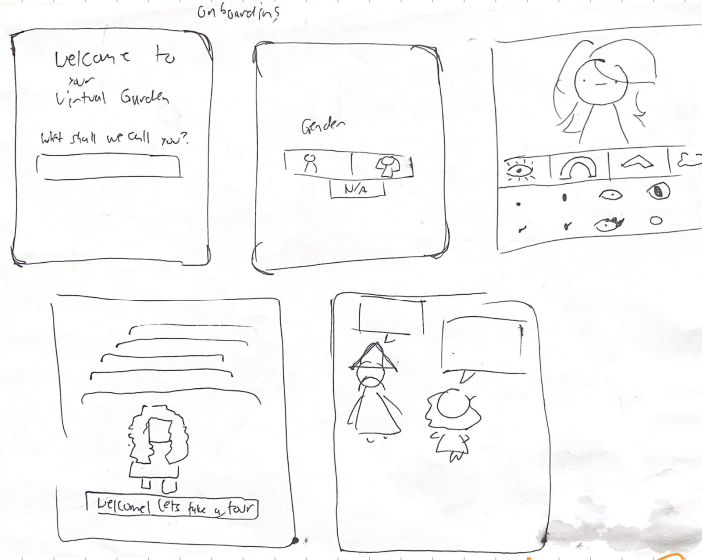 onboarding
Welcome to
your
Virtual Garden
What shall we call you?
Gender
N/A
Welcome! Lets take a tour